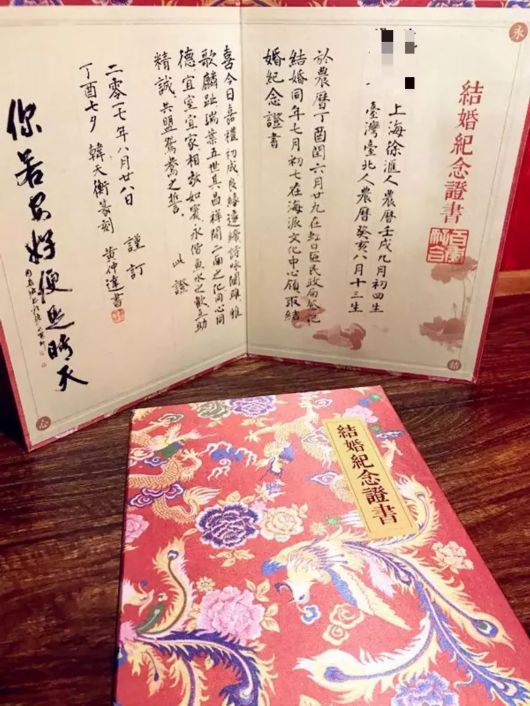 永
結婚紀念證書
上海徐滙人農曆壬戌九月初四生
臺灣臺北人農曆癸亥八月十三生
於農曆丁酉閏六月廿九在虹口區民政局登記
結婚同年七月初七在海派文化中心領取結
婚紀念證書
結
喜今日嘉禮初成良緣遂締詩詠關雎雅
歌麟趾瑞葉五世其昌祥開二南之化同心同
德宜室宜家相敬如賓永偕魚水之歡互助
精誠共盟鴛鴦之誓 此證
謹訂
二〇一七年八月廿八日
丁酉七夕 韓天衡篆刻 黃仲達書
你若安好便是晴天
心
結婚紀念證書